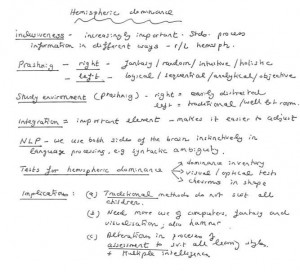 Hemispheric dominance
inclusiveness - increasingly important. Stds. process
information in different ways - r/L hemisph.
Prashnig - right = fantasy / random / intuitive / holistic
- left = logical / sequential / analytical / objective
Study environment (Prashnig) - right = easily distracted
Left = traditional / well lit room.
Integration = important element - makes it easier to adjust
NLP - we use both sides of the brain instinctively in
language processing, e.g syntactic ambiguity.
Tests for hemispheric dominance → dominance inventory
→ visual / optical tests
→ changes in shape
Implications: (a) Traditional methods do not suit all
children.
(b) Need more use of computers, fantasy and
visualisation; also humour
(c) Alterations in process of
assessment to suit all learning styles
+ Multiple Intelligence